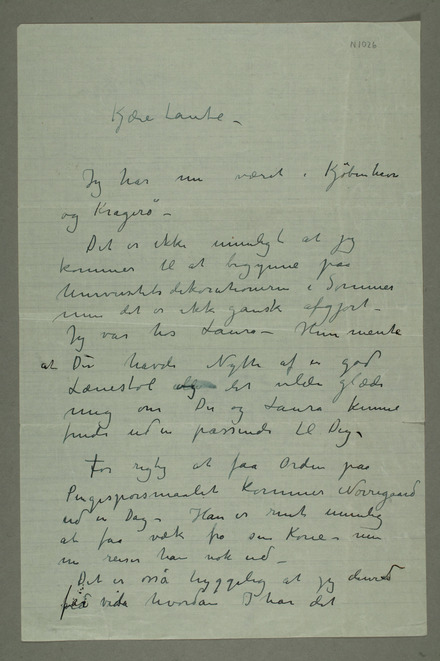 N 1026
Kjære Tante –
Jeg har nu været i Kjøbenhavn
og Kragerø –
Det er ikke umuligt at jeg
kommer til at begynne paa
Universitetsdekorationerne i Sommer
men det er ikke ganske afgjort –
Jeg var hos Laura – Hun mente
at Du havde Nytte af en god
Lænestol det vilde glæde
mig om Du og Laura kunne
finde ud en passende til Dig –
For rigtig at faa Orden paa
Pengespørsmaalet kommer Nørregaard
ud en Dag – Han er rent umulig
at faa væk fra sin Kone – men
nu reiser han nok ud –
Det er også hyggelig at jeg derved
får vide hvordan I har det